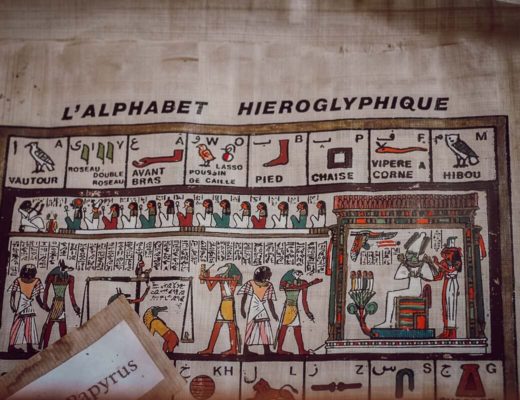 L'ALPHABET HIEROGLYPHIQUE
ا A ى Y ع A و W O ب B P ف F م M
VAUTOUR ROSEAU DOUBLE ROSEAU AVANT BRAS LASSO POUSSIN DE CAILLE PIED CHAISE VIPERE A CORNE HIBOU
KH ل L S ج G
Papyrus